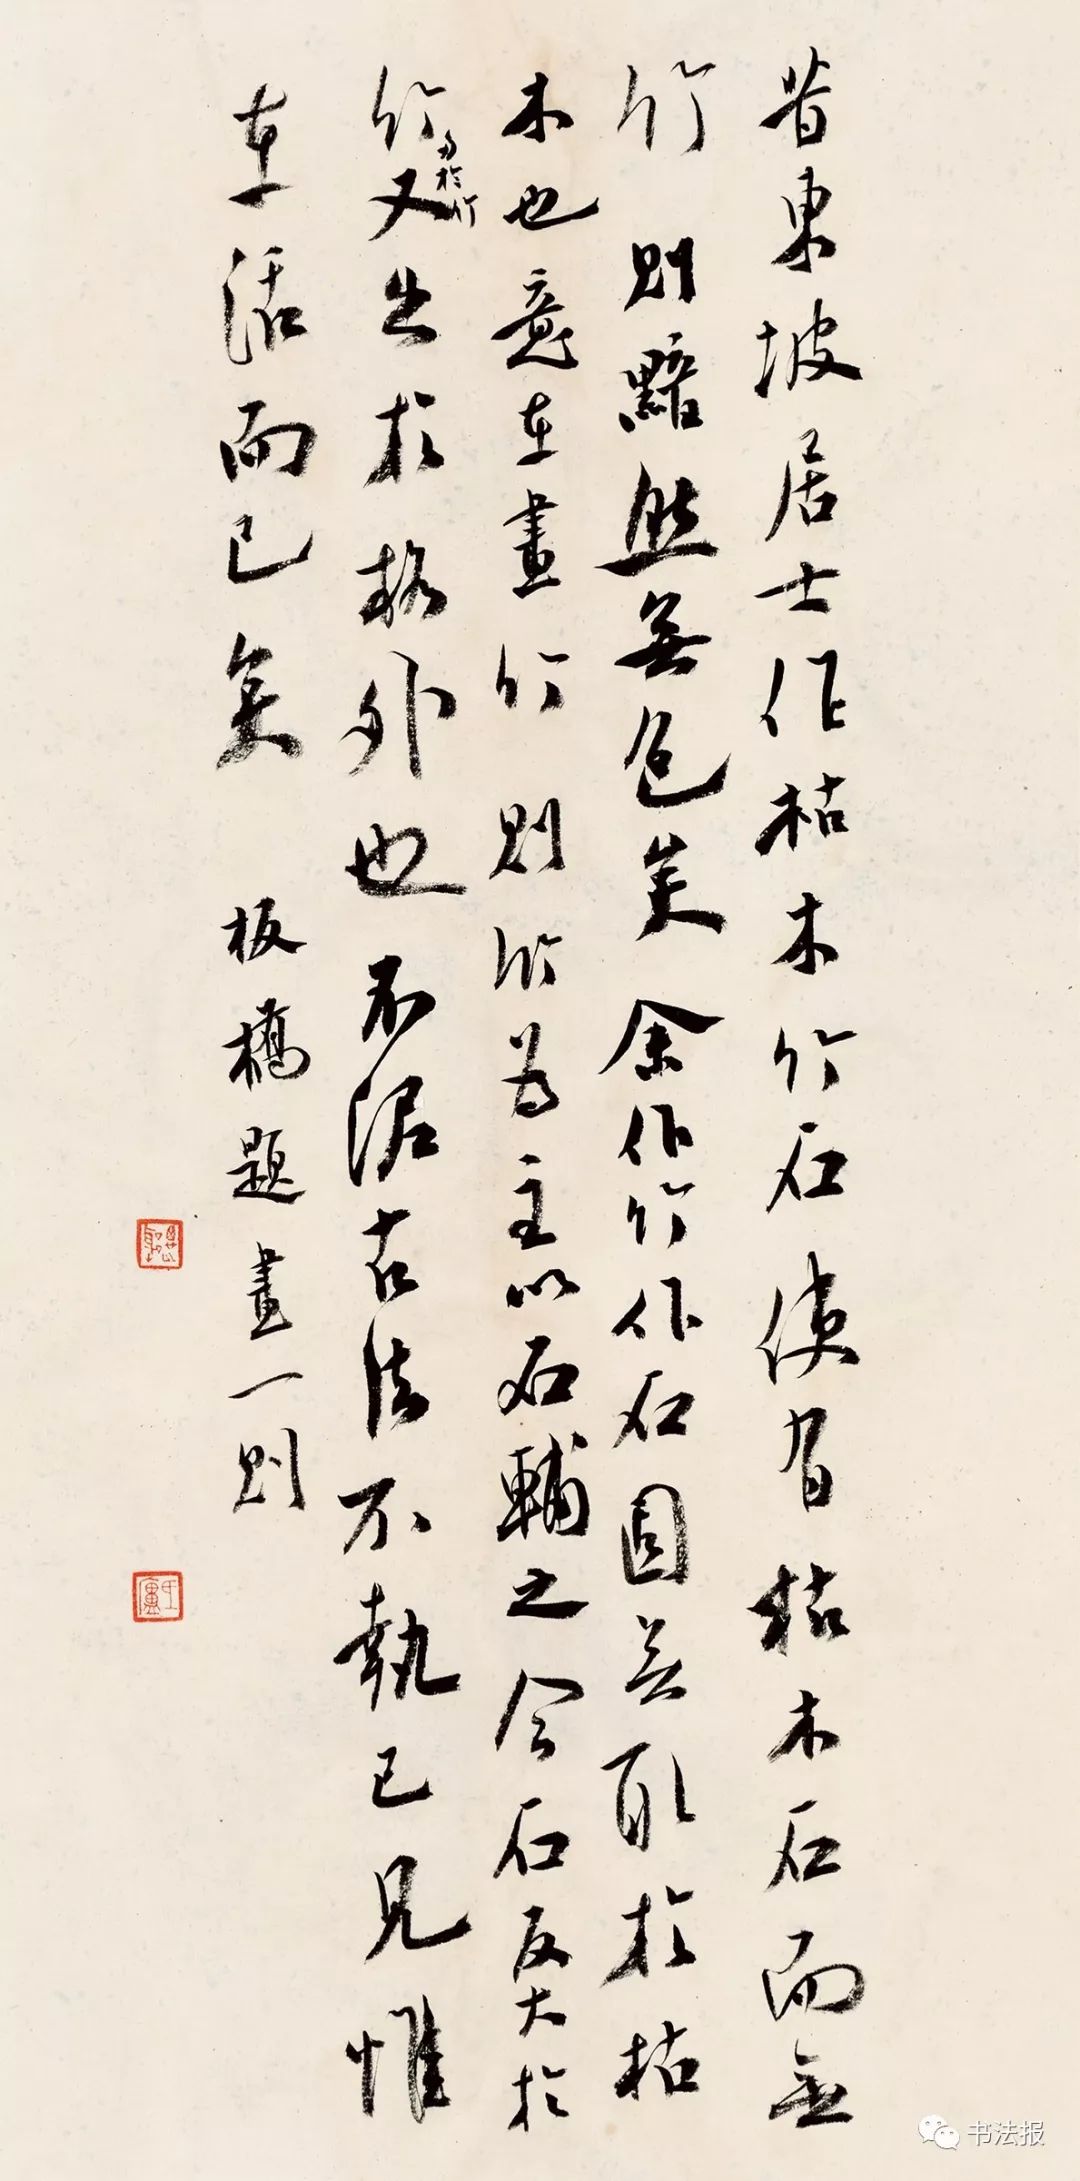 昔東坡居士作枯木竹石使有枯木石而無
竹則黯然無色矣余作竹作石固無取於枯
木也意在畫竹則竹為主以石輔之今石反大於
竹又出於格外也不泥古法不執己見惟
多於竹
在活而已矣 板橋題畫一則
书法报